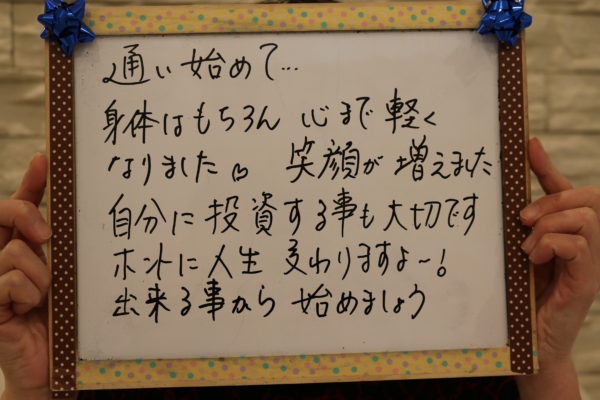 通い始めて…
身体はもちろん 心まで 軽く
なりました♡ 笑顔が 増えました
自分に 投資する事も 大切です
ホントに 人生 変わりますよ〜!
出来る事から 始めましょう